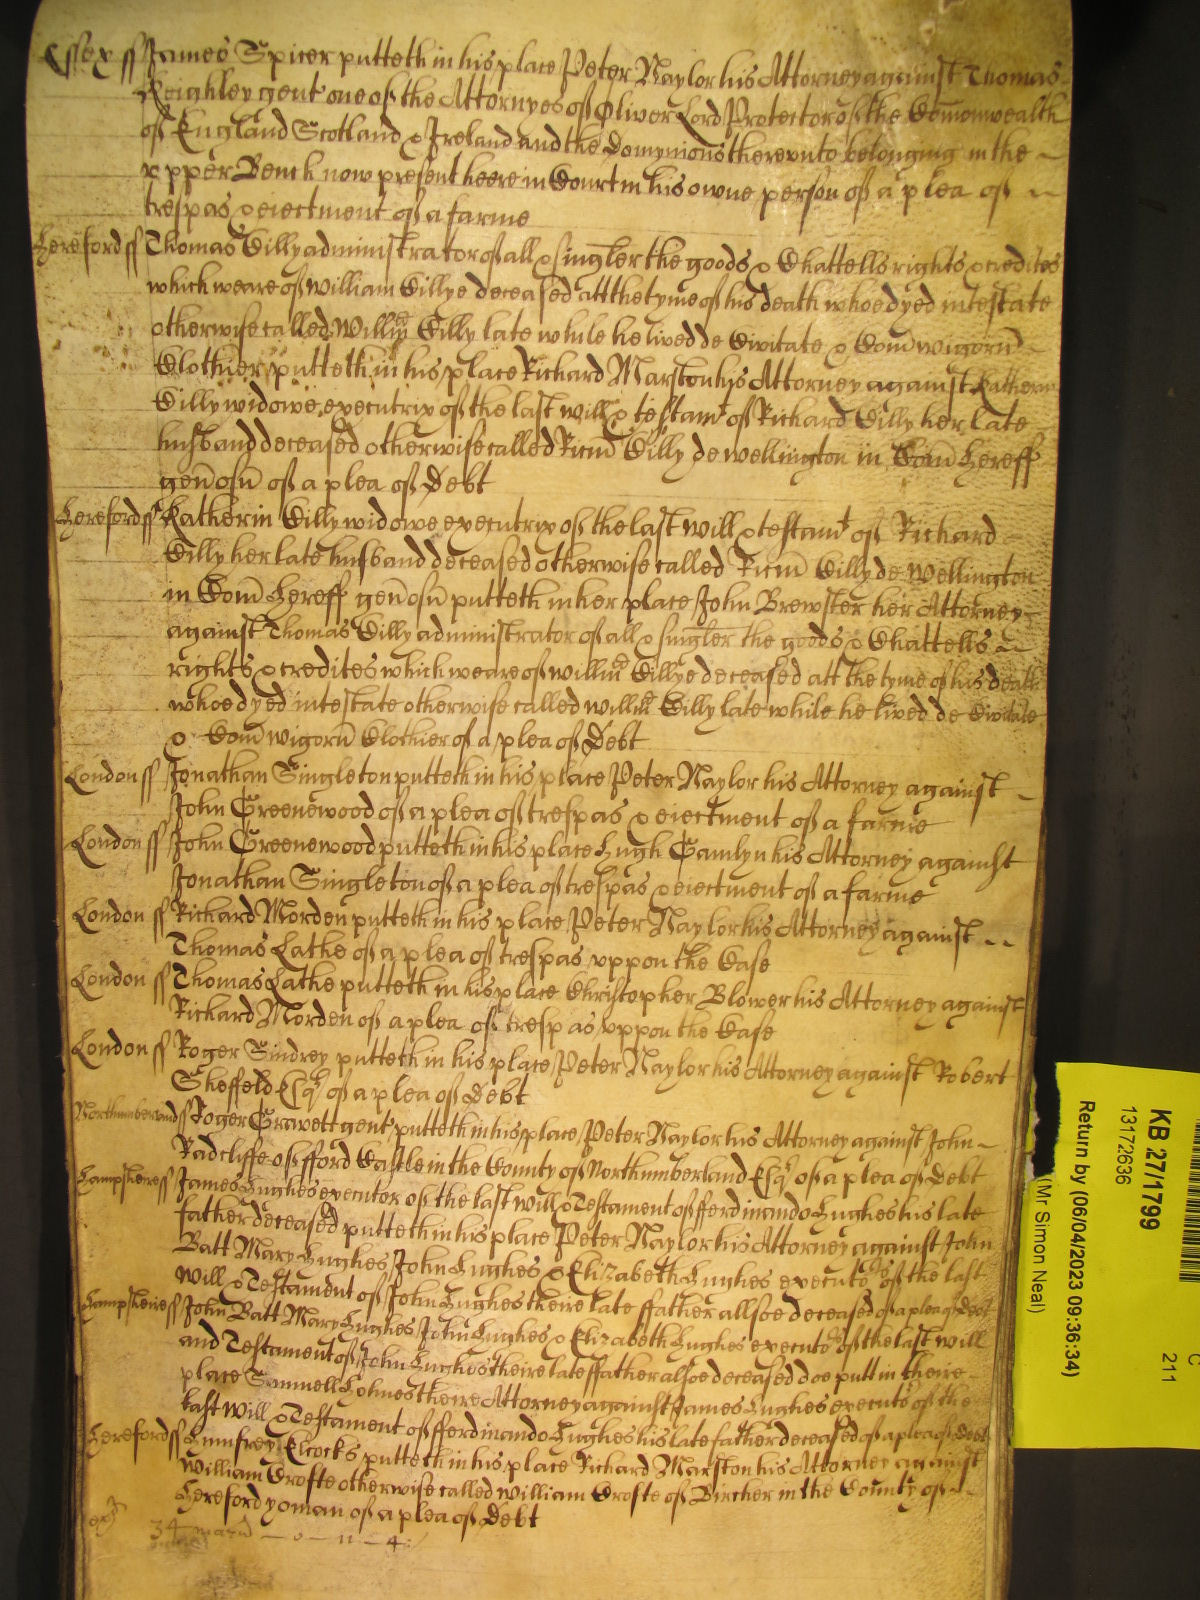 Essex ss James Spicer putteth in his place Peter Naylor his Attorney against Thomas
Keighley gent one of the Attornyes of Oliver Lord Protector of the Comonwealth
of England Scotland & Ireland and the Domynions thereunto belonging in the
upper Bench now present heere in Court in his owne person of a plea of
trespas & eiectment of a farme
Hereford ss Thomas Cilly administrator of all & singler the goods & Chattells rights & credites
which weare of William Cillye deceased att the tyme of his death whoe dyed intestate
otherwise called Willm Cilly late while he lived de Civitate & Com wigorn
Clothier putteth in his place Richard Marston his Attorney against Katherin
Cilly widowe executrix of the last will & testamt of Richard Cilly her late
husband deceased otherwise called Ricum Cilly de wellington in Com Hereff
genosum of a plea of Debt
Hereford ss Katherin Cilly widowe executrix of the last will & testamt of Richard
Cilly her late husband deceased otherwise called Ricum Cilly de Wellington
in Com Hereff genosum putteth in her place John Brewster her Attorney
against Thomas Cilly administrator of all & singler the goods & Chattells
rights & credites which weare of willm Cillye deceased att the tyme of his death
whoe dyed intestate otherwise called willm Cilly late while he lived de Civitate
& Com wigorn Clothier of a plea of Debt
London ss Jonathan Singleton putteth in his place Peter Naylor his Attorney against
John Greenewood of a plea of trespas & eiectment of a farme
London ss John Greenewood putteth in his place Hugh Gamlyn his Attorney against
Jonathan Singleton of a plea of trespas & eiectment of a farme
London ss Richard Morden putteth in his place Peter Naylor his Attorney against
Thomas Lathe of a plea of trespas uppon the Case
London ss Thomas Lathe putteth in his place Christopher Blower his Attorney against
Richard Morden of a plea of trespas uppon the Case
London ss Roger Sindrey putteth in his place Peter Naylor his Attorney against Robert
Sheffeld Esqr of a plea of Debt
Northumberland ss Roger Grawett gent putteth in his place Peter Naylor his Attorney against John
Radcliffe of fford Castle in the County of Northumberland Esqr of a plea of Debt
Hampsheire ss James Hughes executor of the last will & Testament of fferdinando Hughes his late
father deceased putteth in his place Peter Naylor his Attorney against John
Batt Mary Hughes John Hughes & Elizabeth Hughes executors of the last
will & Testament of John Hughes theire late ffather allsoe deceased of a plea of Debt
Hampsheire ss John Batt Mary Hughes John Hughes & Elizabeth Hughes executors of the last will
and Testament of John Hughes theire late ffather alsoe deceased doe putt in theire
place Samuell Holmes theire Attorney against James Hughes executor of the
last will & Testament of fferdinando Hughes his late father deceased of a plea of Debt
Hereford ss Humfrey Elcocks putteth in his place Richard Marston his Attorney against
William Crofte otherwise called William Crofte of Bircher in the County of
Hereford yoman of a plea of Debt
34
KB 27/1799
13172636
Return by (06/04/2023 09:36:34)
(Mr Simon Neal)
211